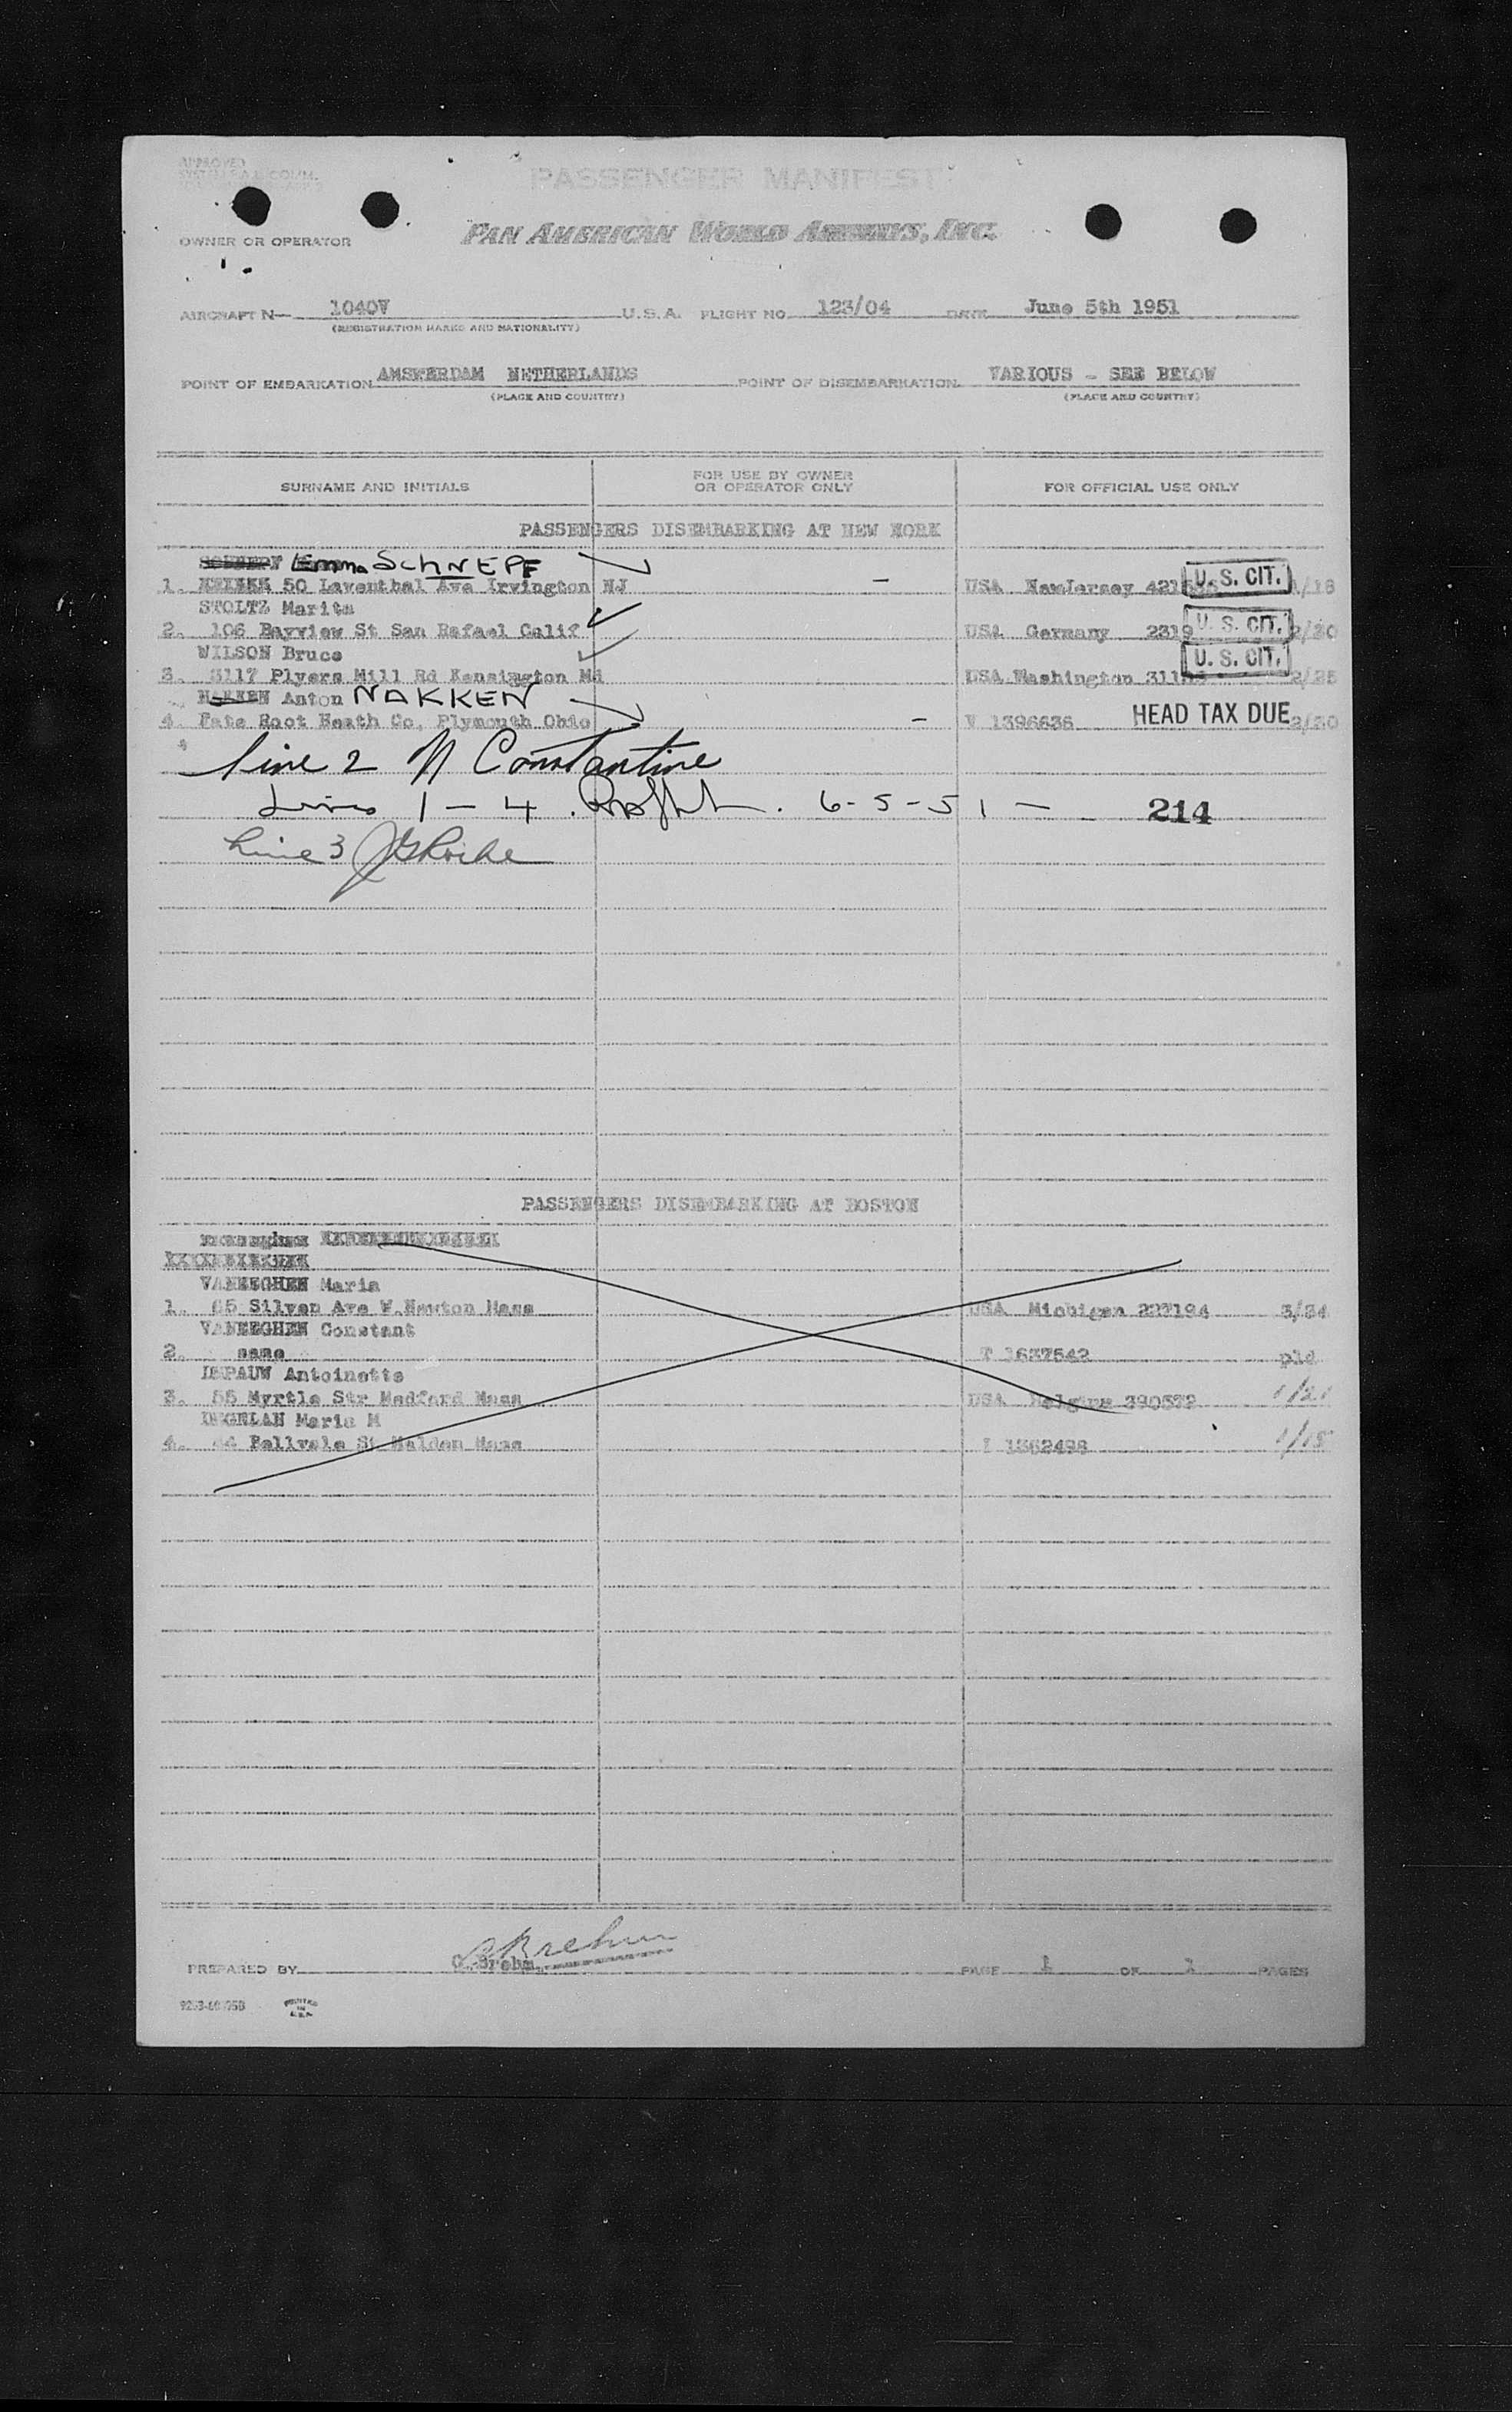 APPROVED
PASSENGER MANIFEST
OWNER OR OPERATOR PAN AMERICAN WORLD AIRWAYS, INC.
AIRCRAFT N— 1040V U.S.A. FLIGHT NO. 123/04 DATE June 5th 1951
(REGISTRATION MARKS AND NATIONALITY)
POINT OF EMBARKATION AMSTERDAM NETHERLANDS POINT OF DISEMBARKATION VARIOUS - SEE BELOW
(PLACE AND COUNTRY) (PLACE AND COUNTRY)
SURNAME AND INITIALS FOR USE BY OWNER OR OPERATOR ONLY FOR OFFICIAL USE ONLY
PASSENGERS DISEMBARKING AT NEW YORK
Emma SCHNEPF
1. 50 Laventhal Ave Irvington NJ - USA NewJersey U. S. CIT. /18
STOLTZ Marita
2. 106 Bayview St San Rafael Calif USA Germany 2319 U. S. CIT. 2/30
WILSON Bruce
3. 3117 Plyers Mill Rd Kensington Md USA Washington U. S. CIT. 2/25
Anton NAKKEN
4. Fate Root Heath Co, Plymouth Ohio - V 1396636 HEAD TAX DUE 2/30
line 2 N Constantine
Lines 1 - 4 . 6-5-51 — 214
Line 3
PASSENGERS DISEMBARKING AT BOSTON
VANEEGHEN Maria
1. 65 Silvan Ave W.Newton Mass USA Michigan 227194 3/34
VANEEGHEN Constant
2. same T 1637542 pld
DEPAUW Antoinette
3. 55 Myrtle Str Medford Mass USA Belgium 390572 1/21
DEGELAN Maria M
4. 44 Bellvale St Malden Mass I 1362498 1/18
PREPARED BY G.Brehm PAGE 1 OF 1 PAGES
PRINTED IN U.S.A.